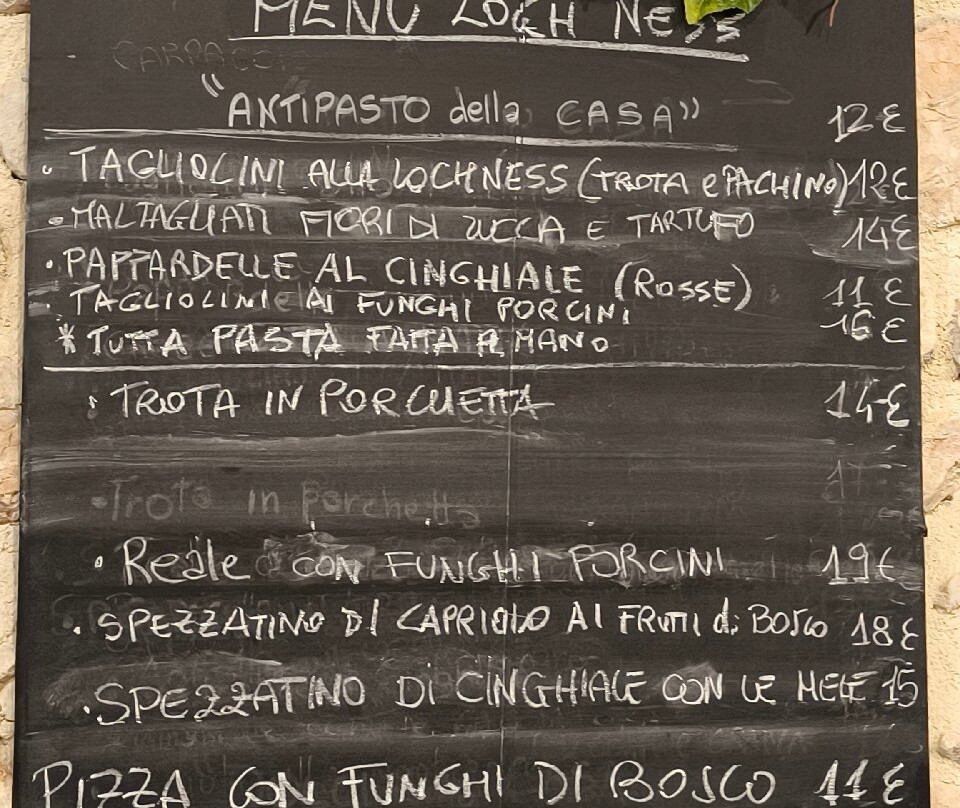 MENU LOCH NESS
"ANTIPASTO della CASA" 12€
• TAGLIOLINI ALLA LOCHNESS (TROTA e PACHINO) 12€
• MALTAGLIATI FIORI DI ZUCCA E TARTUFO 14€
• PAPPARDELLE AL CINGHIALE (ROSSE) 11€
• TAGLIOLINI AI FUNGHI PORCINI 16€
* TUTTA PASTA FATTA A MANO
• TROTA IN PORCHETTA 14€
• Trota in porchetta
• Reale CON FUNGHI PORCINI 19€
• SPEZZATINO DI CAPRIOLO AI FRUTTI di BOSCO 18€
• SPEZZATINO DI CINGHIALE CON LE MELE 15
PIZZA CON FUNGHI DI BOSCO 11€